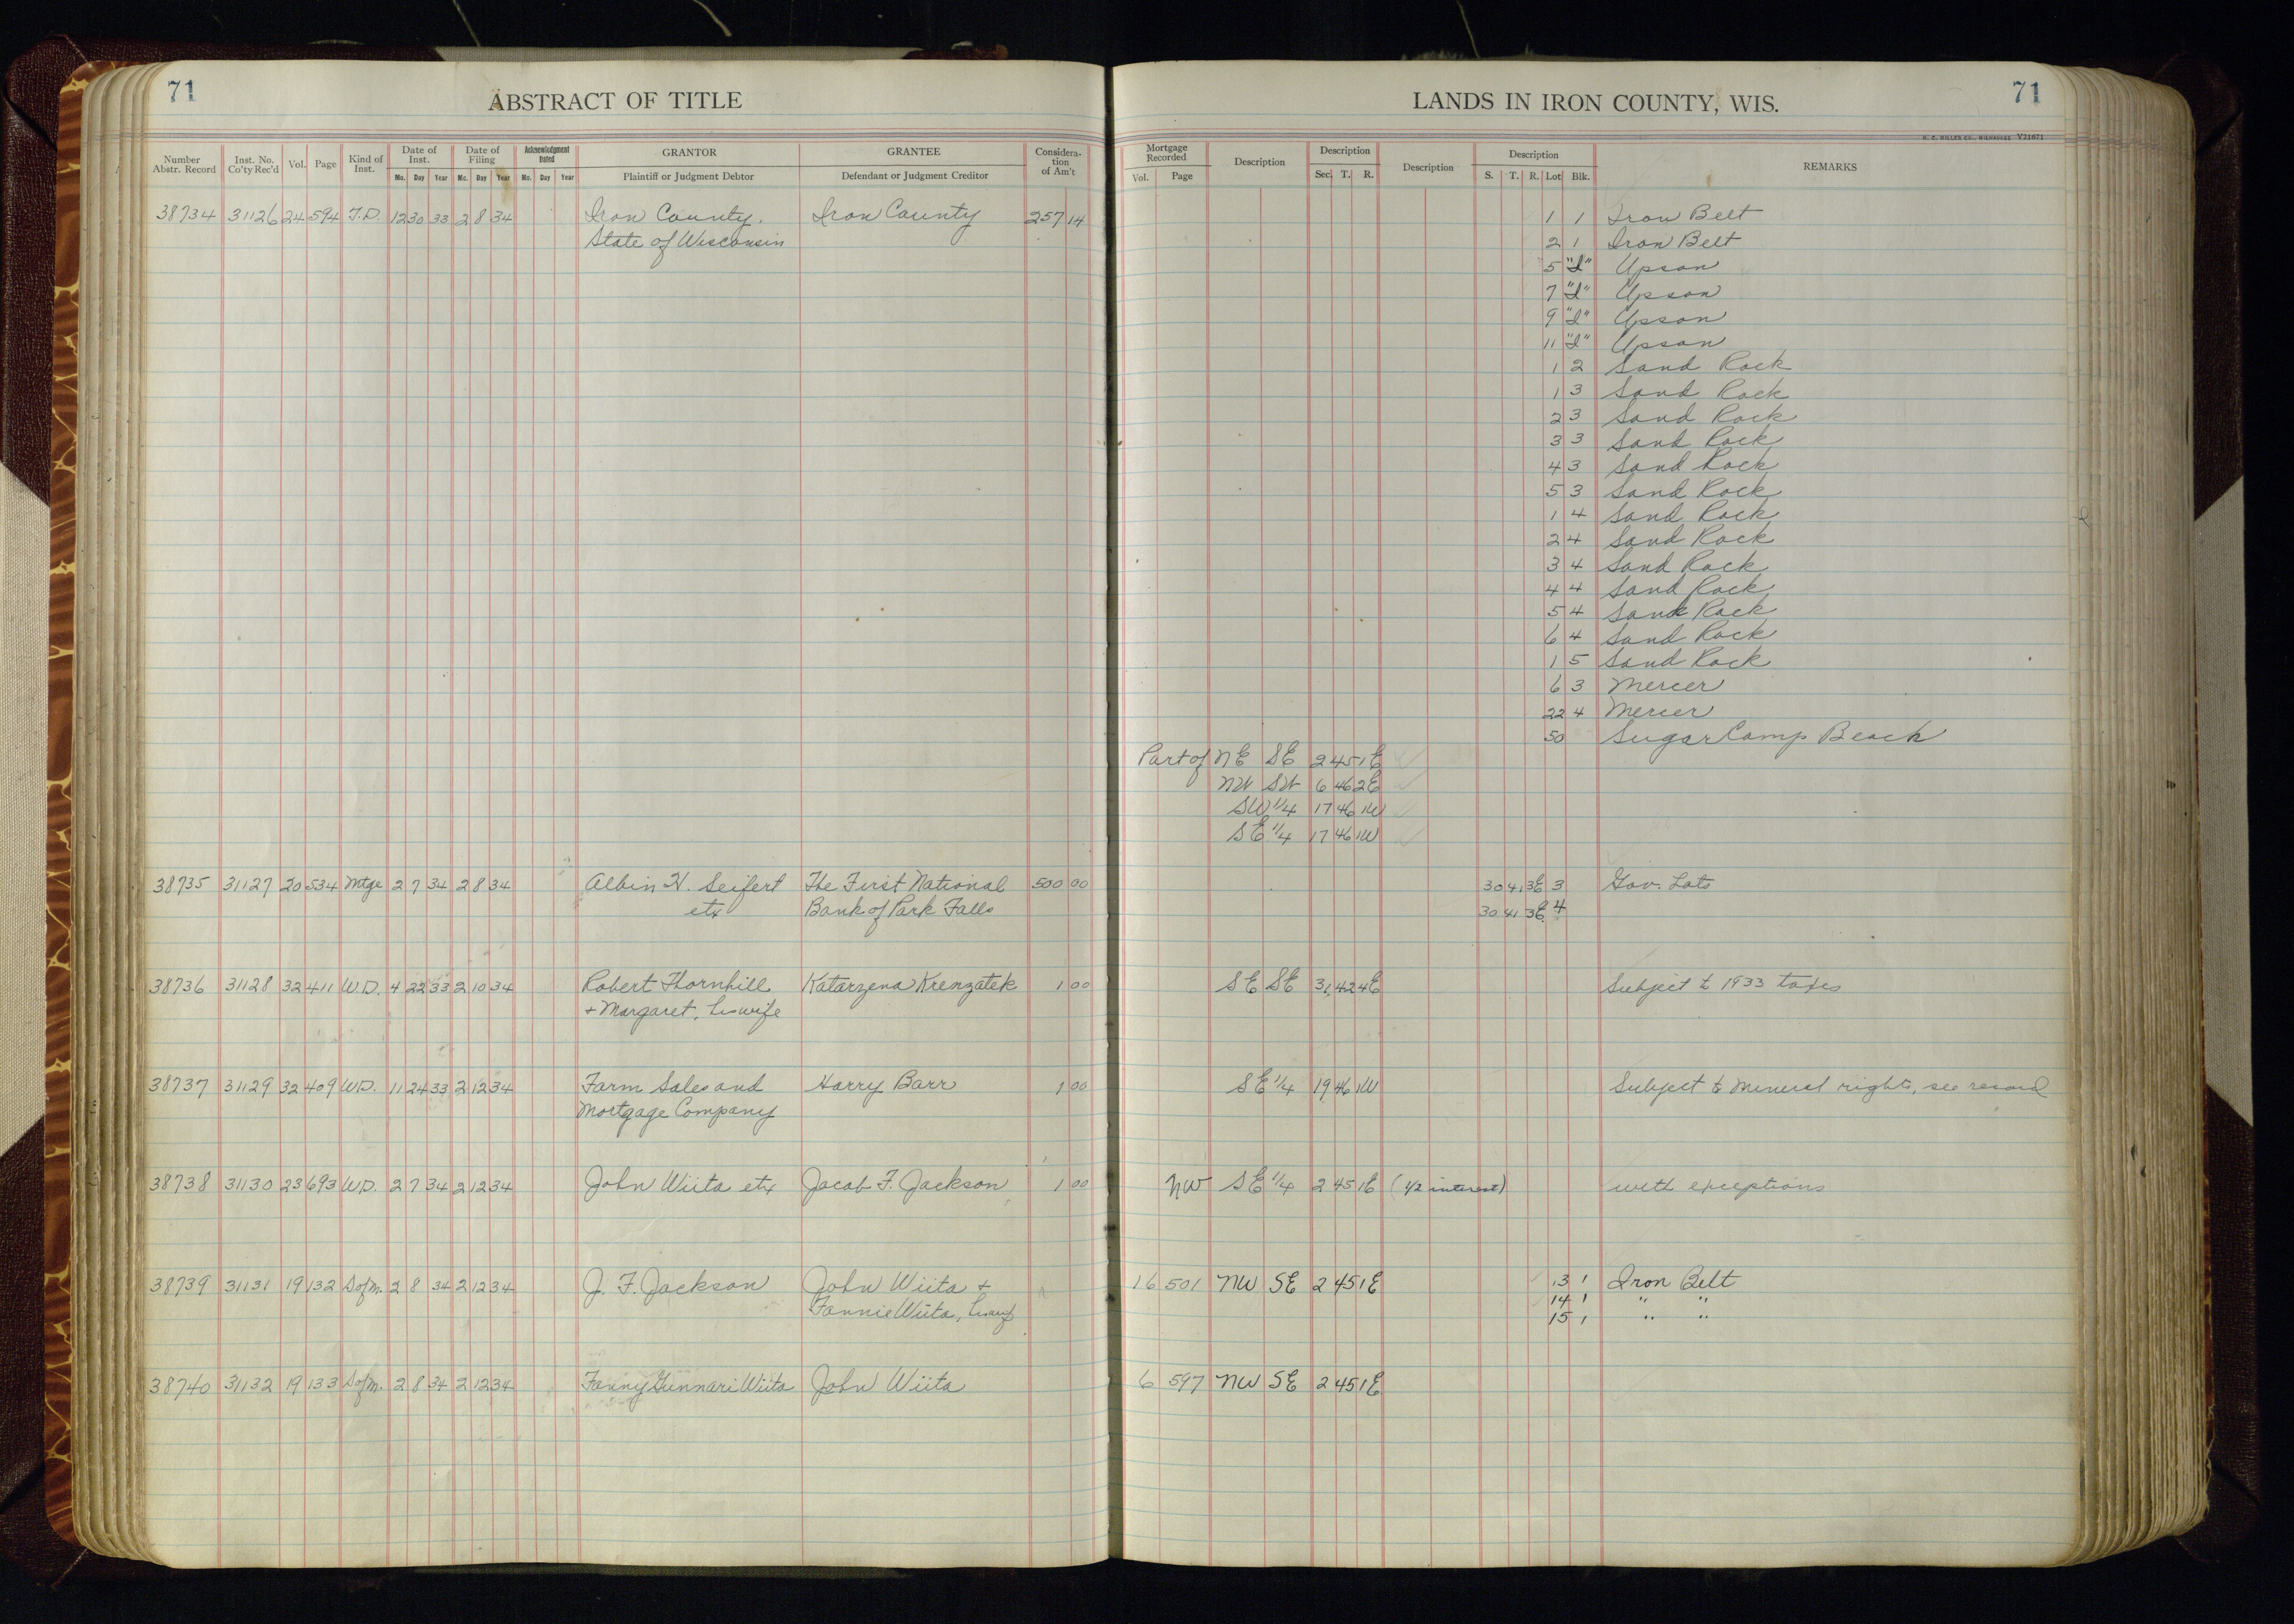 71
ABSTRACT OF TITLE
Number Abstr. Record Inst. No. Co'ty Rec'd Vol. Page Kind of Inst. Date of Inst. Mo. Day Year Date of Filing Mo. Day Year Acknowledgment Dated Mo. Day Year GRANTOR Plaintiff or Judgment Debtor GRANTEE Defendant or Judgment Creditor Consideration of Am't
38734 31126 24 594 T.D. 12 30 33 2 8 34 Iron County. Iron County 257 14
State of Wisconsin
38735 31127 20 534 Mtge 2 7 34 2 8 34 Albin H. Seifert The First National 500 00
etx Bank of Park Falls
38736 31128 32 411 W.D. 4 22 33 2 10 34 Robert Thornhill Katarzena Krenzatek 1 00
+ Margaret, his wife
38737 31129 32 409 W.D. 11 24 33 2 12 34 Farm Sales and Harry Barr 1 00
Mortgage Company
38738 31130 23 693 W.D. 2 7 34 2 12 34 John Wiita etx Jacob F. Jackson 1 00
38739 31131 19 132 S of M. 2 8 34 2 12 34 J. F. Jackson John Wiita +
Fannie Wiita, his wife
38740 31132 19 133 S of M. 2 8 34 2 12 34 Fanny Gunnari Wiita John Wiita
LANDS IN IRON COUNTY, WIS.
71
H. C. MILLER CO., MILWAUKEE V21671
Mortgage Recorded Vol. Page Description Description Sec. T. R. Description Description S. T. R. Lot Blk. REMARKS
1 1 Iron Belt
2 1 Iron Belt
5 "I" Upson
7 "I" Upson
9 "I" Upson
11 "I" Upson
1 2 Sand Rock
1 3 Sand Rock
2 3 Sand Rock
3 3 Sand Rock
4 3 Sand Rock
5 3 Sand Rock
1 4 Sand Rock
2 4 Sand Rock
3 4 Sand Rock
4 4 Sand Rock
5 4 Sand Rock
6 4 Sand Rock
1 5 Sand Rock
6 3 Mercer
22 4 Mercer
50 Sugar Camp Beach
Part of NE SE 2 45 1E
NW SW 6 46 2E
SW 1/4 17 46 1W
SE 1/4 17 46 1W
30 41 3E 3 Gov. Lots
30 41 3E 4
SE SE 31 42 4E Subject to 1933 taxes
SE 1/4 19 46 1W Subject to mineral rights, see record
NW SE 1/4 2 45 1E (1/2 interest) with exceptions
16 501 NW SE 2 45 1E 13 1 Iron Belt
14 1 " "
15 1 " "
6 597 NW SE 2 45 1E